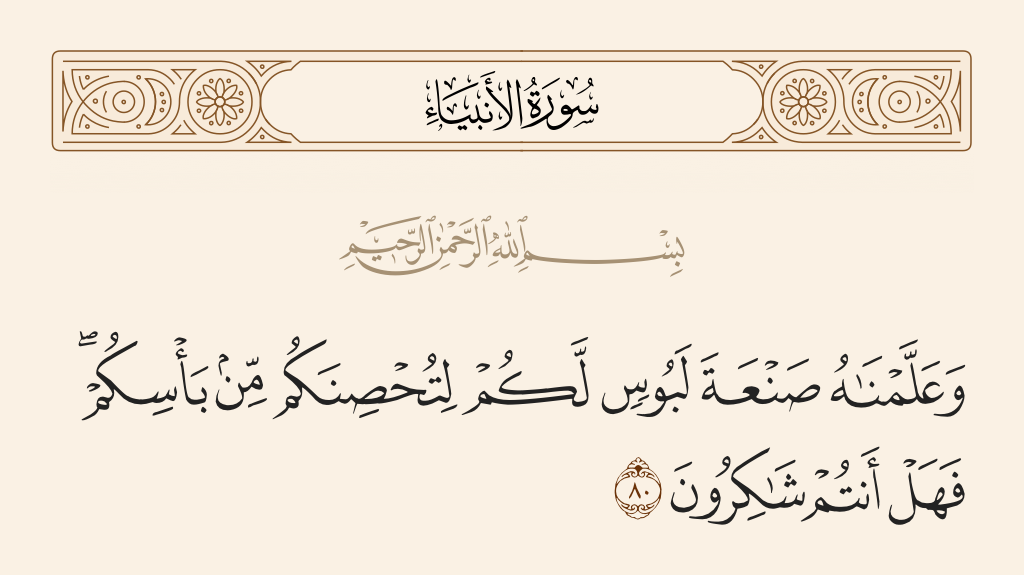 سُورَةُ الأَنبِيَاءِ
بِسْمِ ٱللَّهِ ٱلرَّحْمَٰنِ ٱلرَّحِيمِ
وَعَلَّمْنَٰهُ صَنْعَةَ لَبُوسٍ لَّكُمْ لِتُحْصِنَكُم مِّنۢ بَأْسِكُمْ ۖ
فَهَلْ أَنتُمْ شَٰكِرُونَ ٨٠